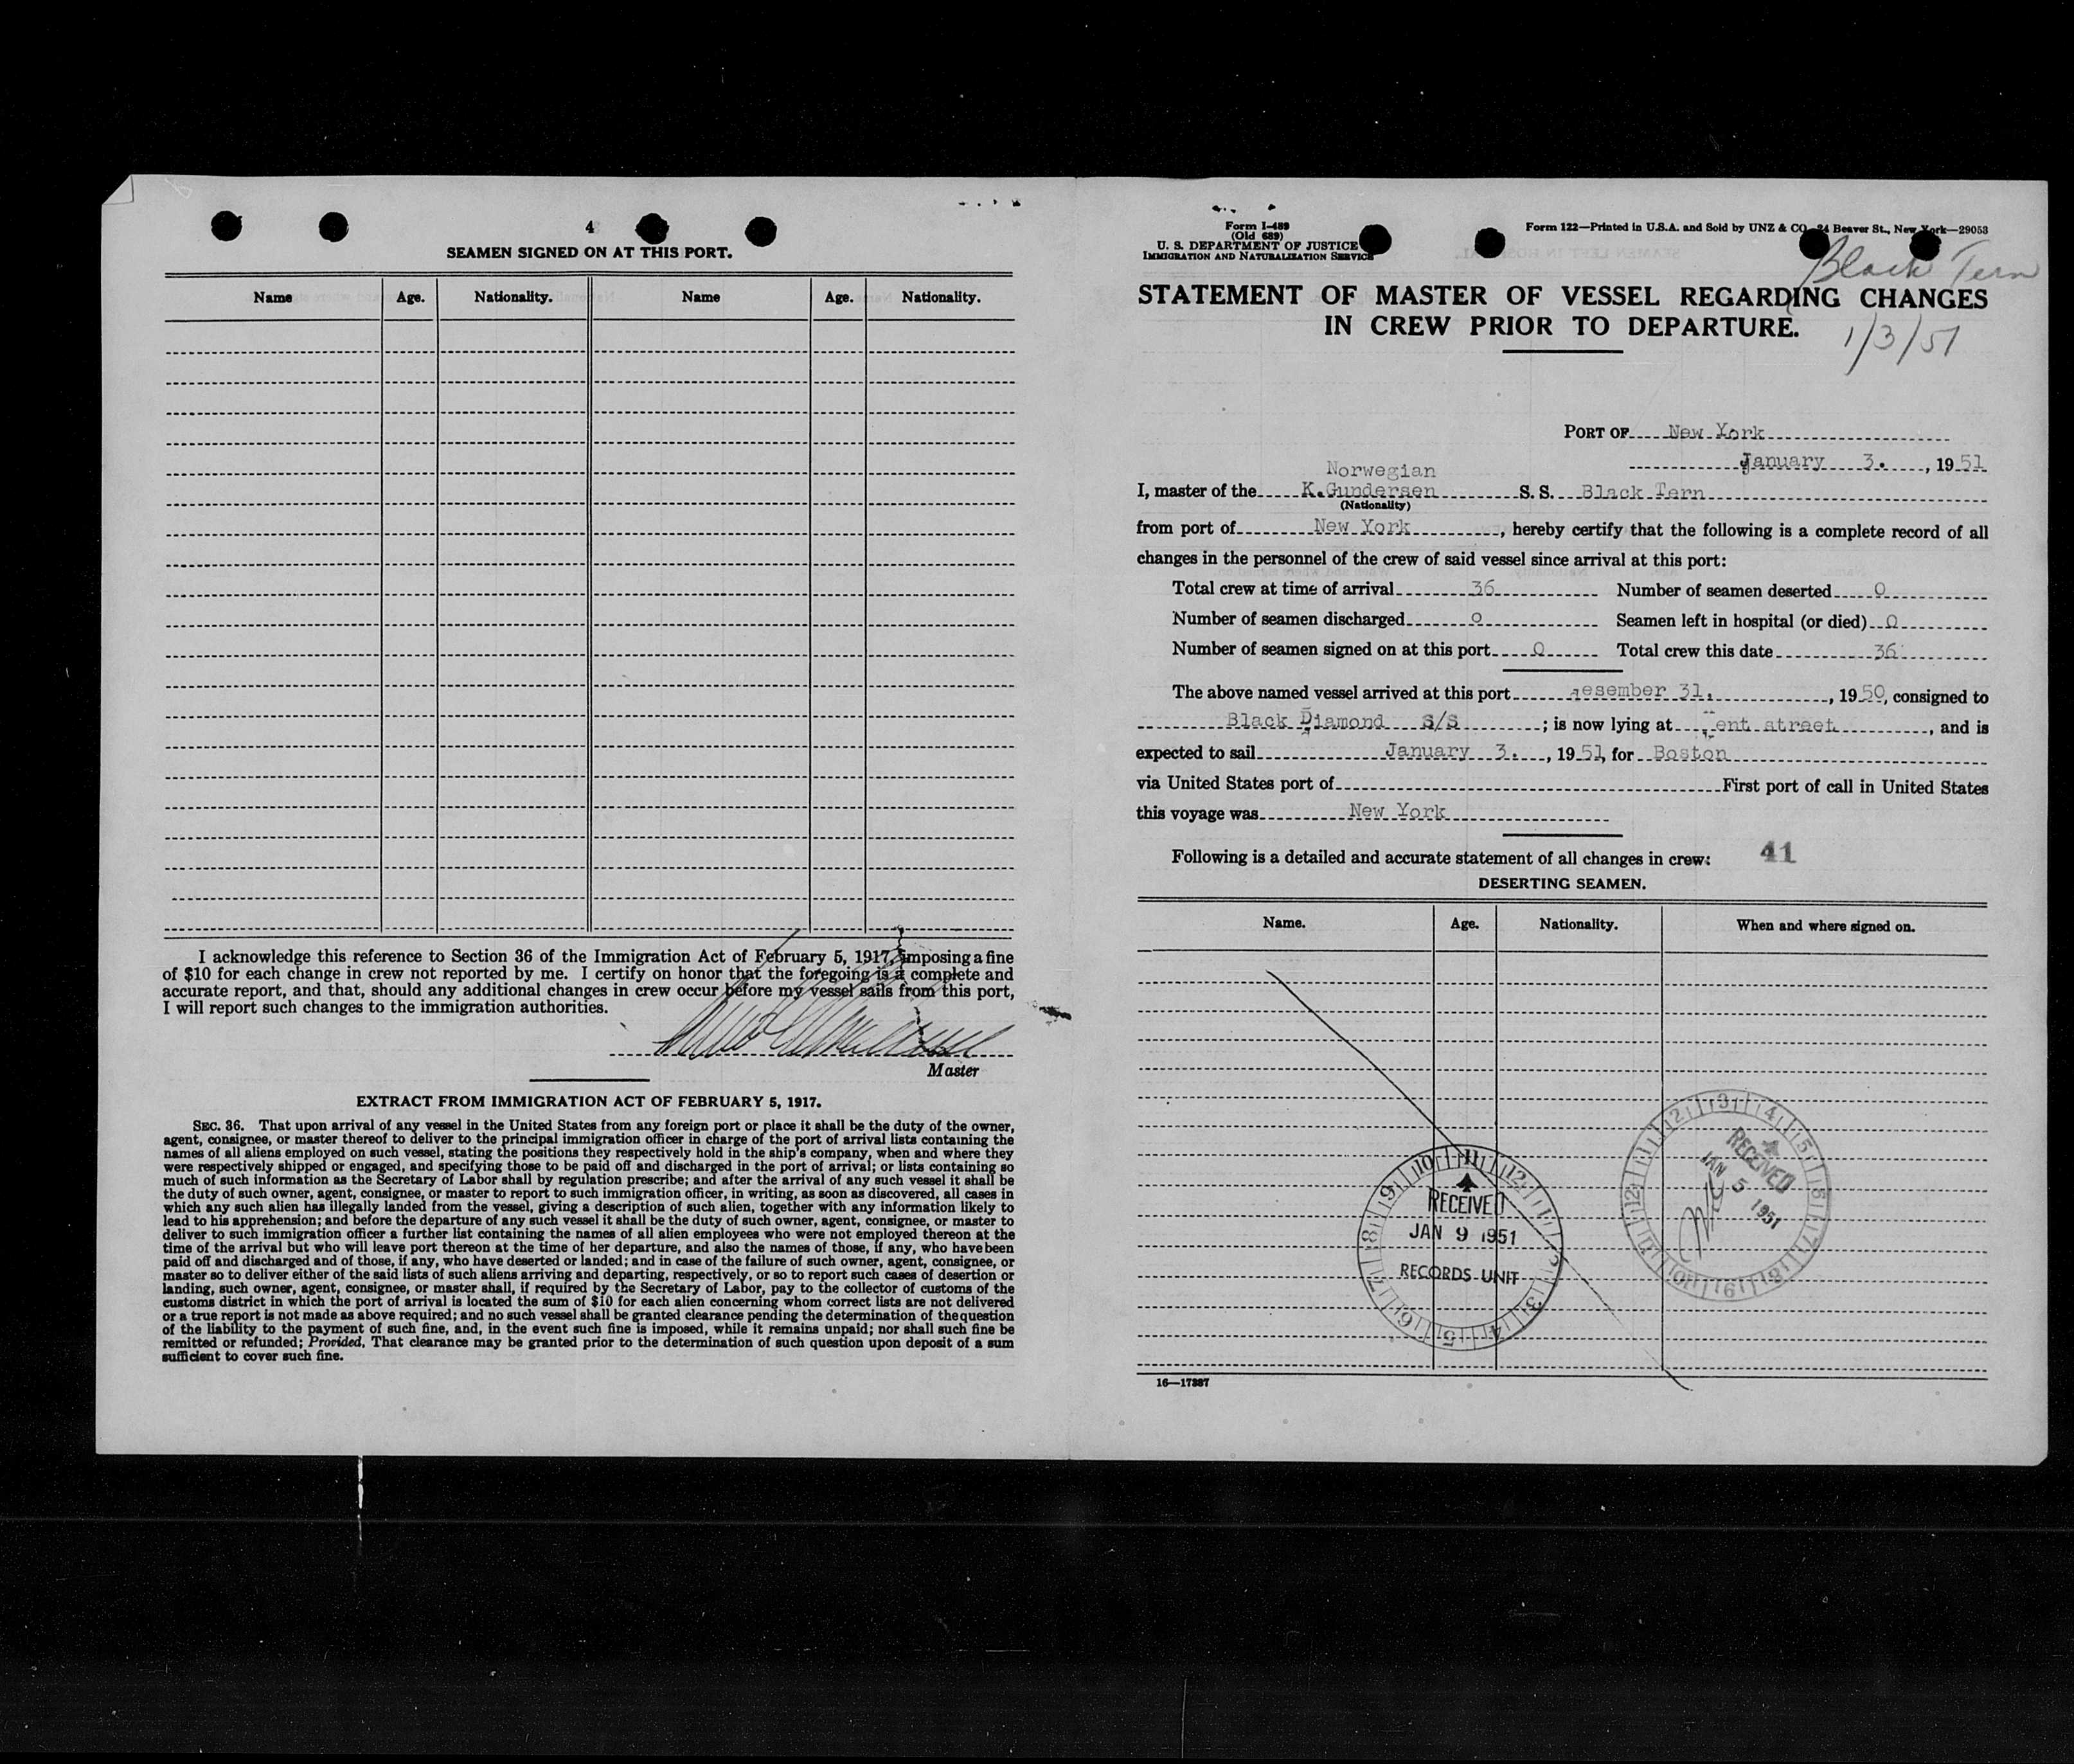 4
SEAMEN SIGNED ON AT THIS PORT.
Name Age. Nationality. Name Age. Nationality.
I acknowledge this reference to Section 36 of the Immigration Act of February 5, 1917, imposing a fine
of $10 for each change in crew not reported by me. I certify on honor that the foregoing is a complete and
accurate report, and that, should any additional changes in crew occur before my vessel sails from this port,
I will report such changes to the immigration authorities.
Master
EXTRACT FROM IMMIGRATION ACT OF FEBRUARY 5, 1917.
SEC. 36. That upon arrival of any vessel in the United States from any foreign port or place it shall be the duty of the owner,
agent, consignee, or master thereof to deliver to the principal immigration officer in charge of the port of arrival lists containing the
names of all aliens employed on such vessel, stating the positions they respectively hold in the ship's company, when and where they
were respectively shipped or engaged, and specifying those to be paid off and discharged in the port of arrival; or lists containing so
much of such information as the Secretary of Labor shall by regulation prescribe; and after the arrival of any such vessel it shall be
the duty of such owner, agent, consignee, or master to report to such immigration officer, in writing, as soon as discovered, all cases in
which any such alien has illegally landed from the vessel, giving a description of such alien, together with any information likely to
lead to his apprehension; and before the departure of any such vessel it shall be the duty of such owner, agent, consignee, or master to
deliver to such immigration officer a further list containing the names of all alien employees who were not employed thereon at the
time of the arrival but who will leave port thereon at the time of her departure, and also the names of those, if any, who have been
paid off and discharged and of those, if any, who have deserted or landed; and in case of the failure of such owner, agent, consignee, or
master so to deliver either of the said lists of such aliens arriving and departing, respectively, or so to report such cases of desertion or
landing, such owner, agent, consignee, or master shall, if required by the Secretary of Labor, pay to the collector of customs of the
customs district in which the port of arrival is located the sum of $10 for each alien concerning whom correct lists are not delivered
or a true report is not made as above required; and no such vessel shall be granted clearance pending the determination of the question
of the liability to the payment of such fine, and, in the event such fine is imposed, while it remains unpaid; nor shall such fine be
remitted or refunded; Provided, That clearance may be granted prior to the determination of such question upon deposit of a sum
sufficient to cover such fine.
Form I-489
(Old 689)
U. S. DEPARTMENT OF JUSTICE
IMMIGRATION AND NATURALIZATION SERVICE
Form 122—Printed in U.S.A. and Sold by UNZ & CO. 24 Beaver St., New York—29053
Black Tern
STATEMENT OF MASTER OF VESSEL REGARDING CHANGES
IN CREW PRIOR TO DEPARTURE.
1/3/51
PORT OF New York
January 3. , 1951
Norwegian
I, master of the K.Gundersen S. S. Black Tern
(Nationality)
from port of New York , hereby certify that the following is a complete record of all
changes in the personnel of the crew of said vessel since arrival at this port:
Total crew at time of arrival 36 Number of seamen deserted 0
Number of seamen discharged 0 Seamen left in hospital (or died) 0
Number of seamen signed on at this port 0 Total crew this date 36
The above named vessel arrived at this port desember 31. , 1950, consigned to
Black Diamond S/S ; is now lying at ent street , and is
expected to sail January 3. , 1951, for Boston
via United States port of First port of call in United States
this voyage was New York
Following is a detailed and accurate statement of all changes in crew: 41
DESERTING SEAMEN.
Name. Age. Nationality. When and where signed on.
RECEIVED
JAN 9 1951
RECORDS UNIT
RECEIVED
JAN 5 1951
16—17887